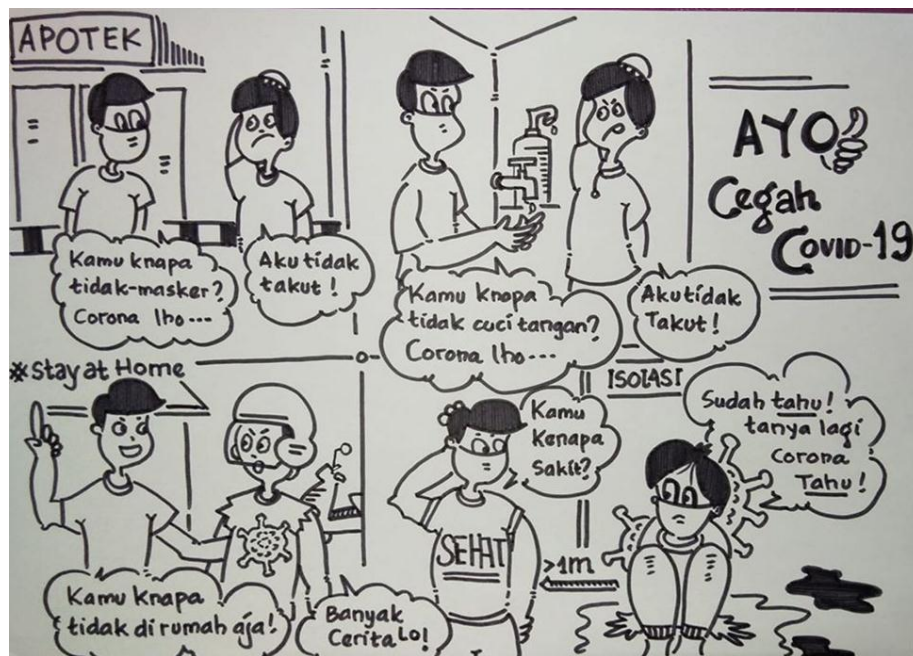 APOTEK
Kamu knapa
tidak-masker?
Corona lho---
Aku tidak
takut!
Kamu knapa
tidak cuci tangan?
Corona lho---
Aku tidak
Takut!
AYO
Cegah
COVID-19
#Stay at Home
Kamu knapa
tidak di rumah aja!
Banyak
Cerita Lo!
Kamu
Kenapa
Sakit?
SEHAT
>1m
ISOLASI
Sudah tahu!
tanya lagi
Corona
Tahu!